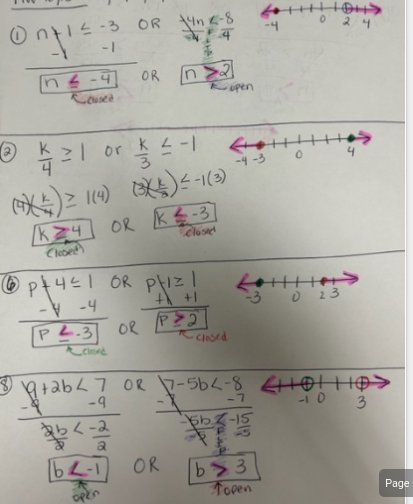 ① n+1 ≤ -3 OR -4n < -8
-1 -1 -4 -4
n ≤ -4 OR n > 2
closed open
-4 0 2 4
② k/4 ≥ 1 or k/3 ≤ -1
(4)(k/4) ≥ 1(4) (3)(k/3) ≤ -1(3)
k ≥ 4 OR k ≤ -3
closed closed
-4 -3 0 4
⑥ p+4 ≤ 1 OR p-1 ≥ 1
-4 -4 +1 +1
p ≤ -3 OR p ≥ 2
closed closed
-3 0 2 3
⑧ 9+2b < 7 OR 7-5b < -8
-9 -9 -7 -7
2b/2 < -2/2 -5b/-5 < -15/-5
b < -1 OR b > 3
open open
-1 0 3
Page